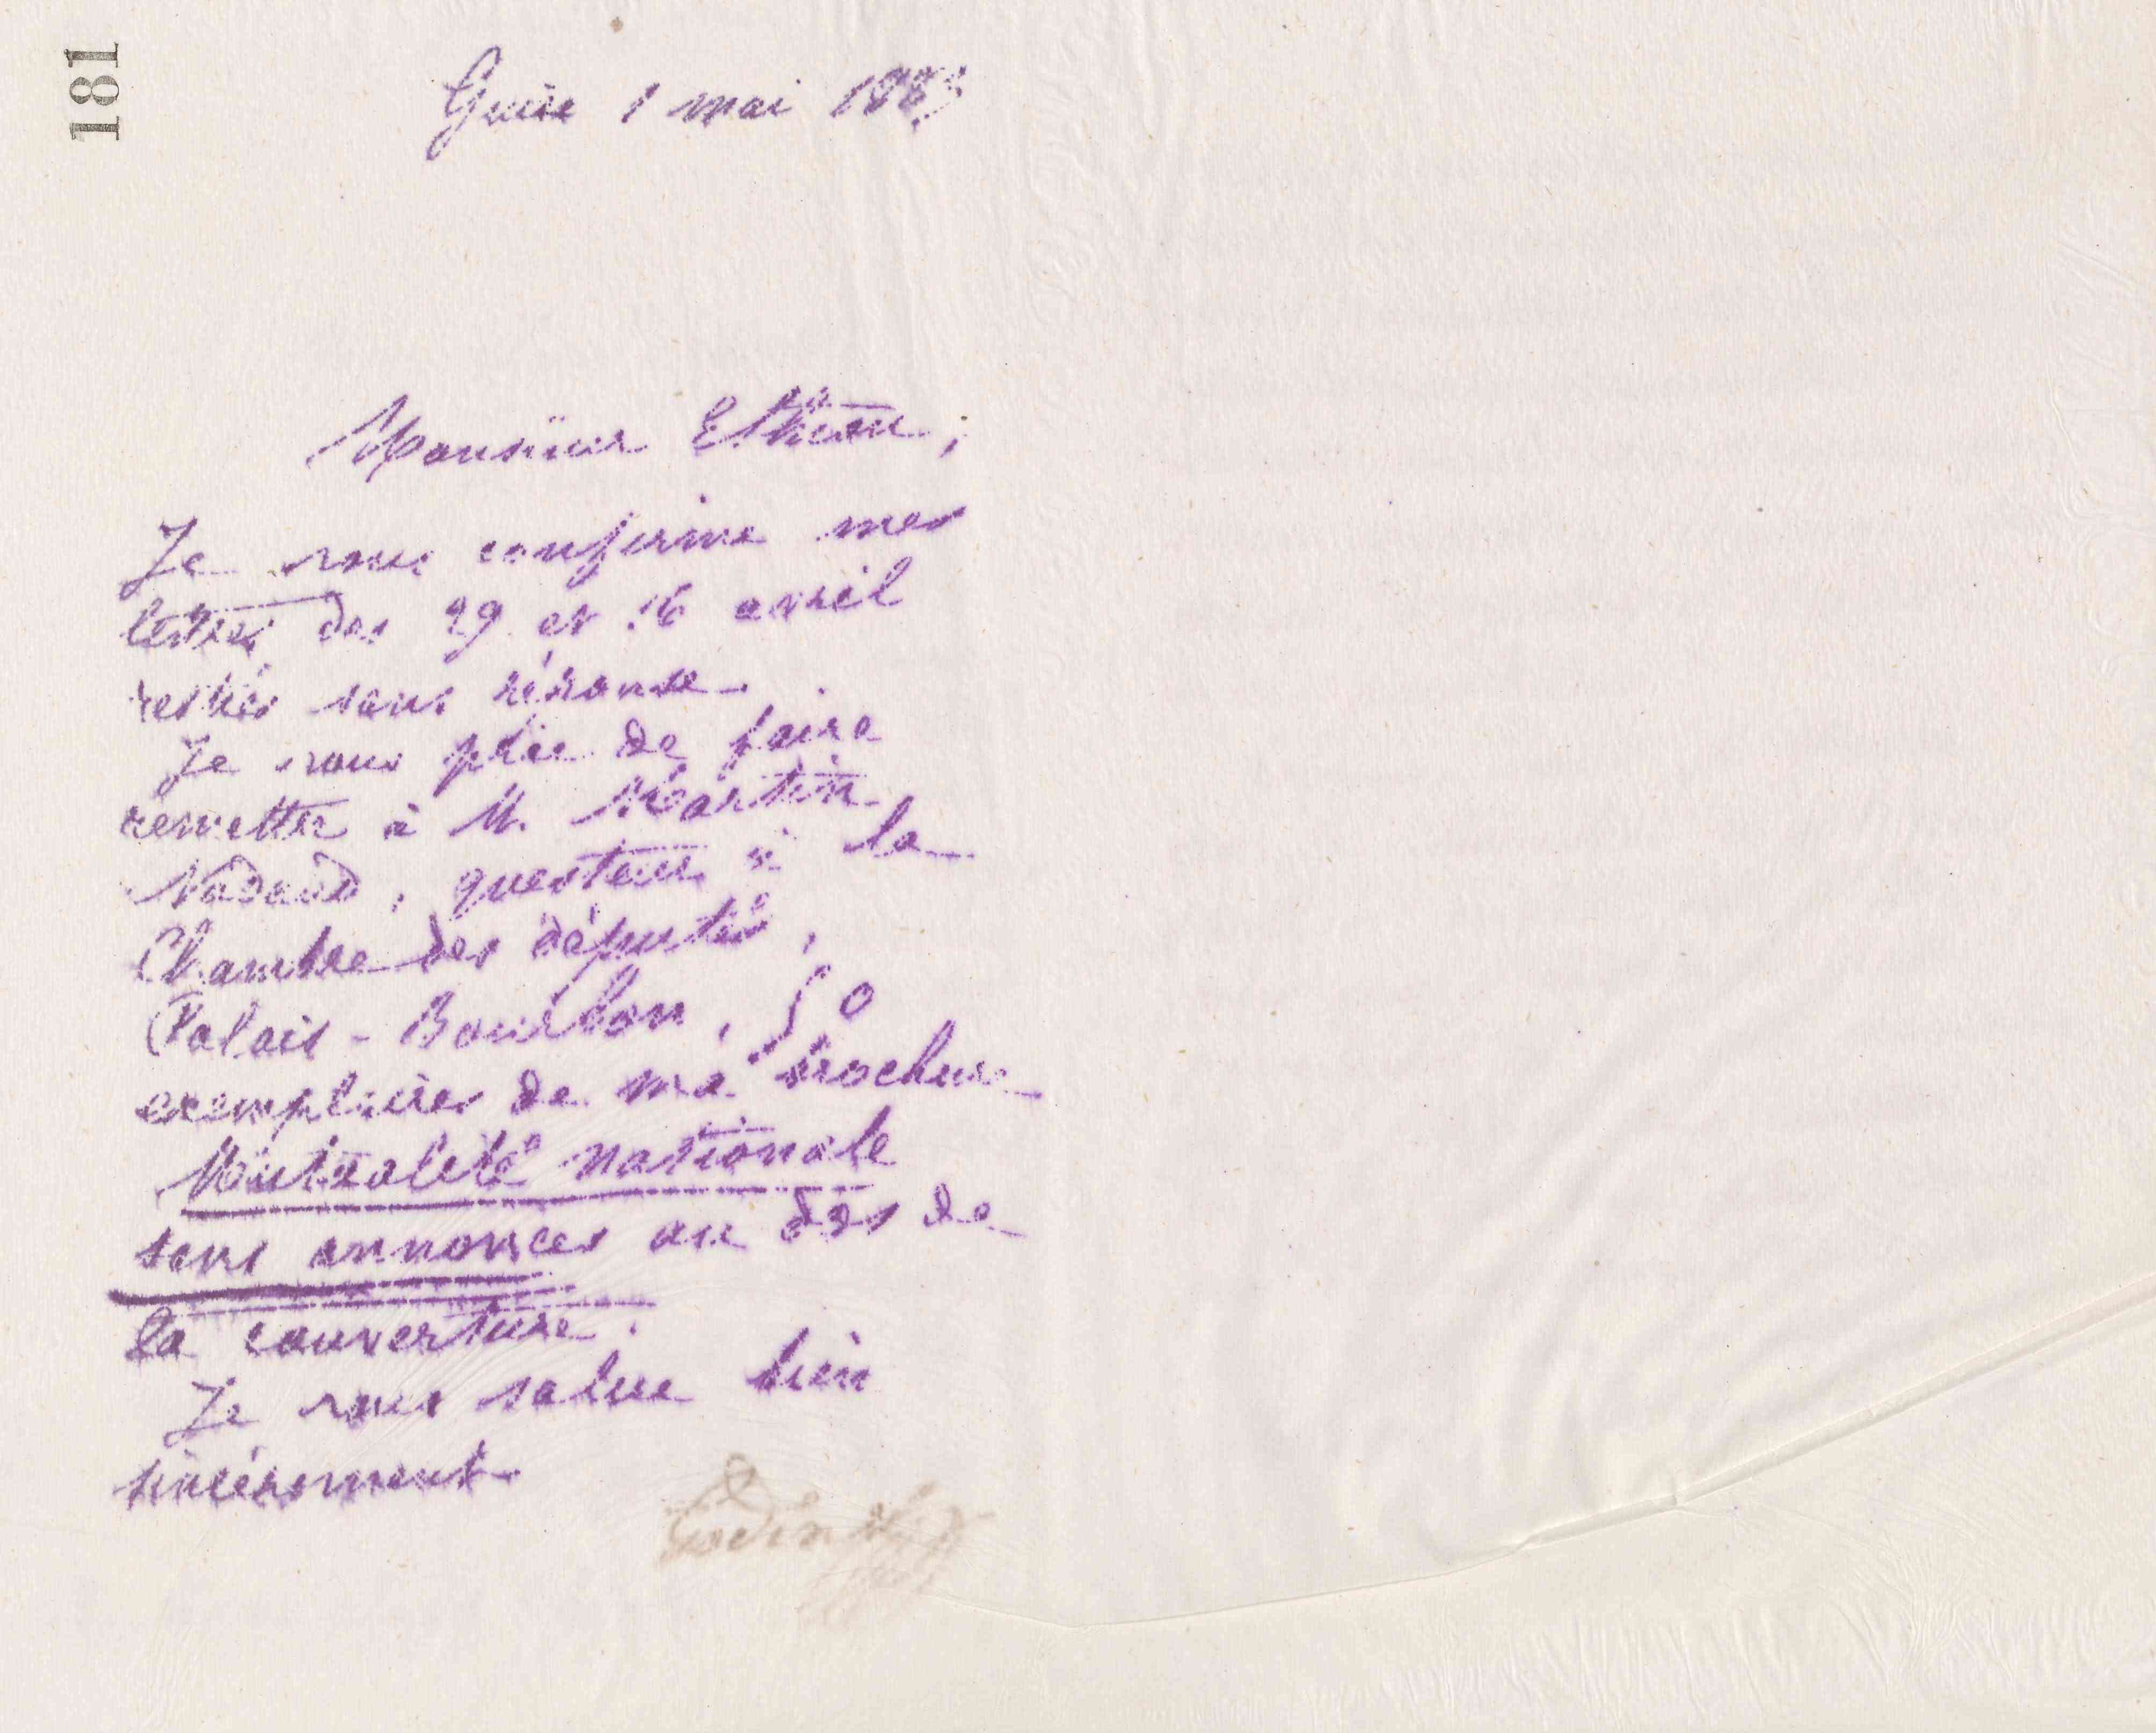 181
Guise 1 mai 1883
Monsieur Etienne,
Je vous confirme mes
lettres des 29 et 16 avril
restées sans réponse.
Je vous prie de faire
remettre à M. Martin
Nadaud, questeur à la
Chambre des députés,
Palais-Bourbon, 50
exemplaires de ma brochure
Mutualité nationale
sans annonces au dos de
la couverture.
Je vous salue bien
sincèrement.
Godin